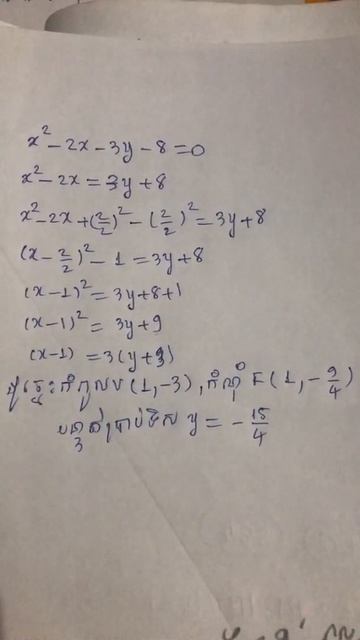 x² - 2x - 3y - 8 = 0
x² - 2x = 3y + 8
x² - 2x + (2/2)² - (2/2)² = 3y + 8
(x - 2/2)² - 1 = 3y + 8
(x - 1)² = 3y + 8 + 1
(x - 1)² = 3y + 9
(x - 1) = 3(y + 3)
ដូច្នេះ កំពូល V (1, -3), កំណុំ F (1, - 9/4)
បន្ទាត់ប្រាប់ទិស y = - 15/4